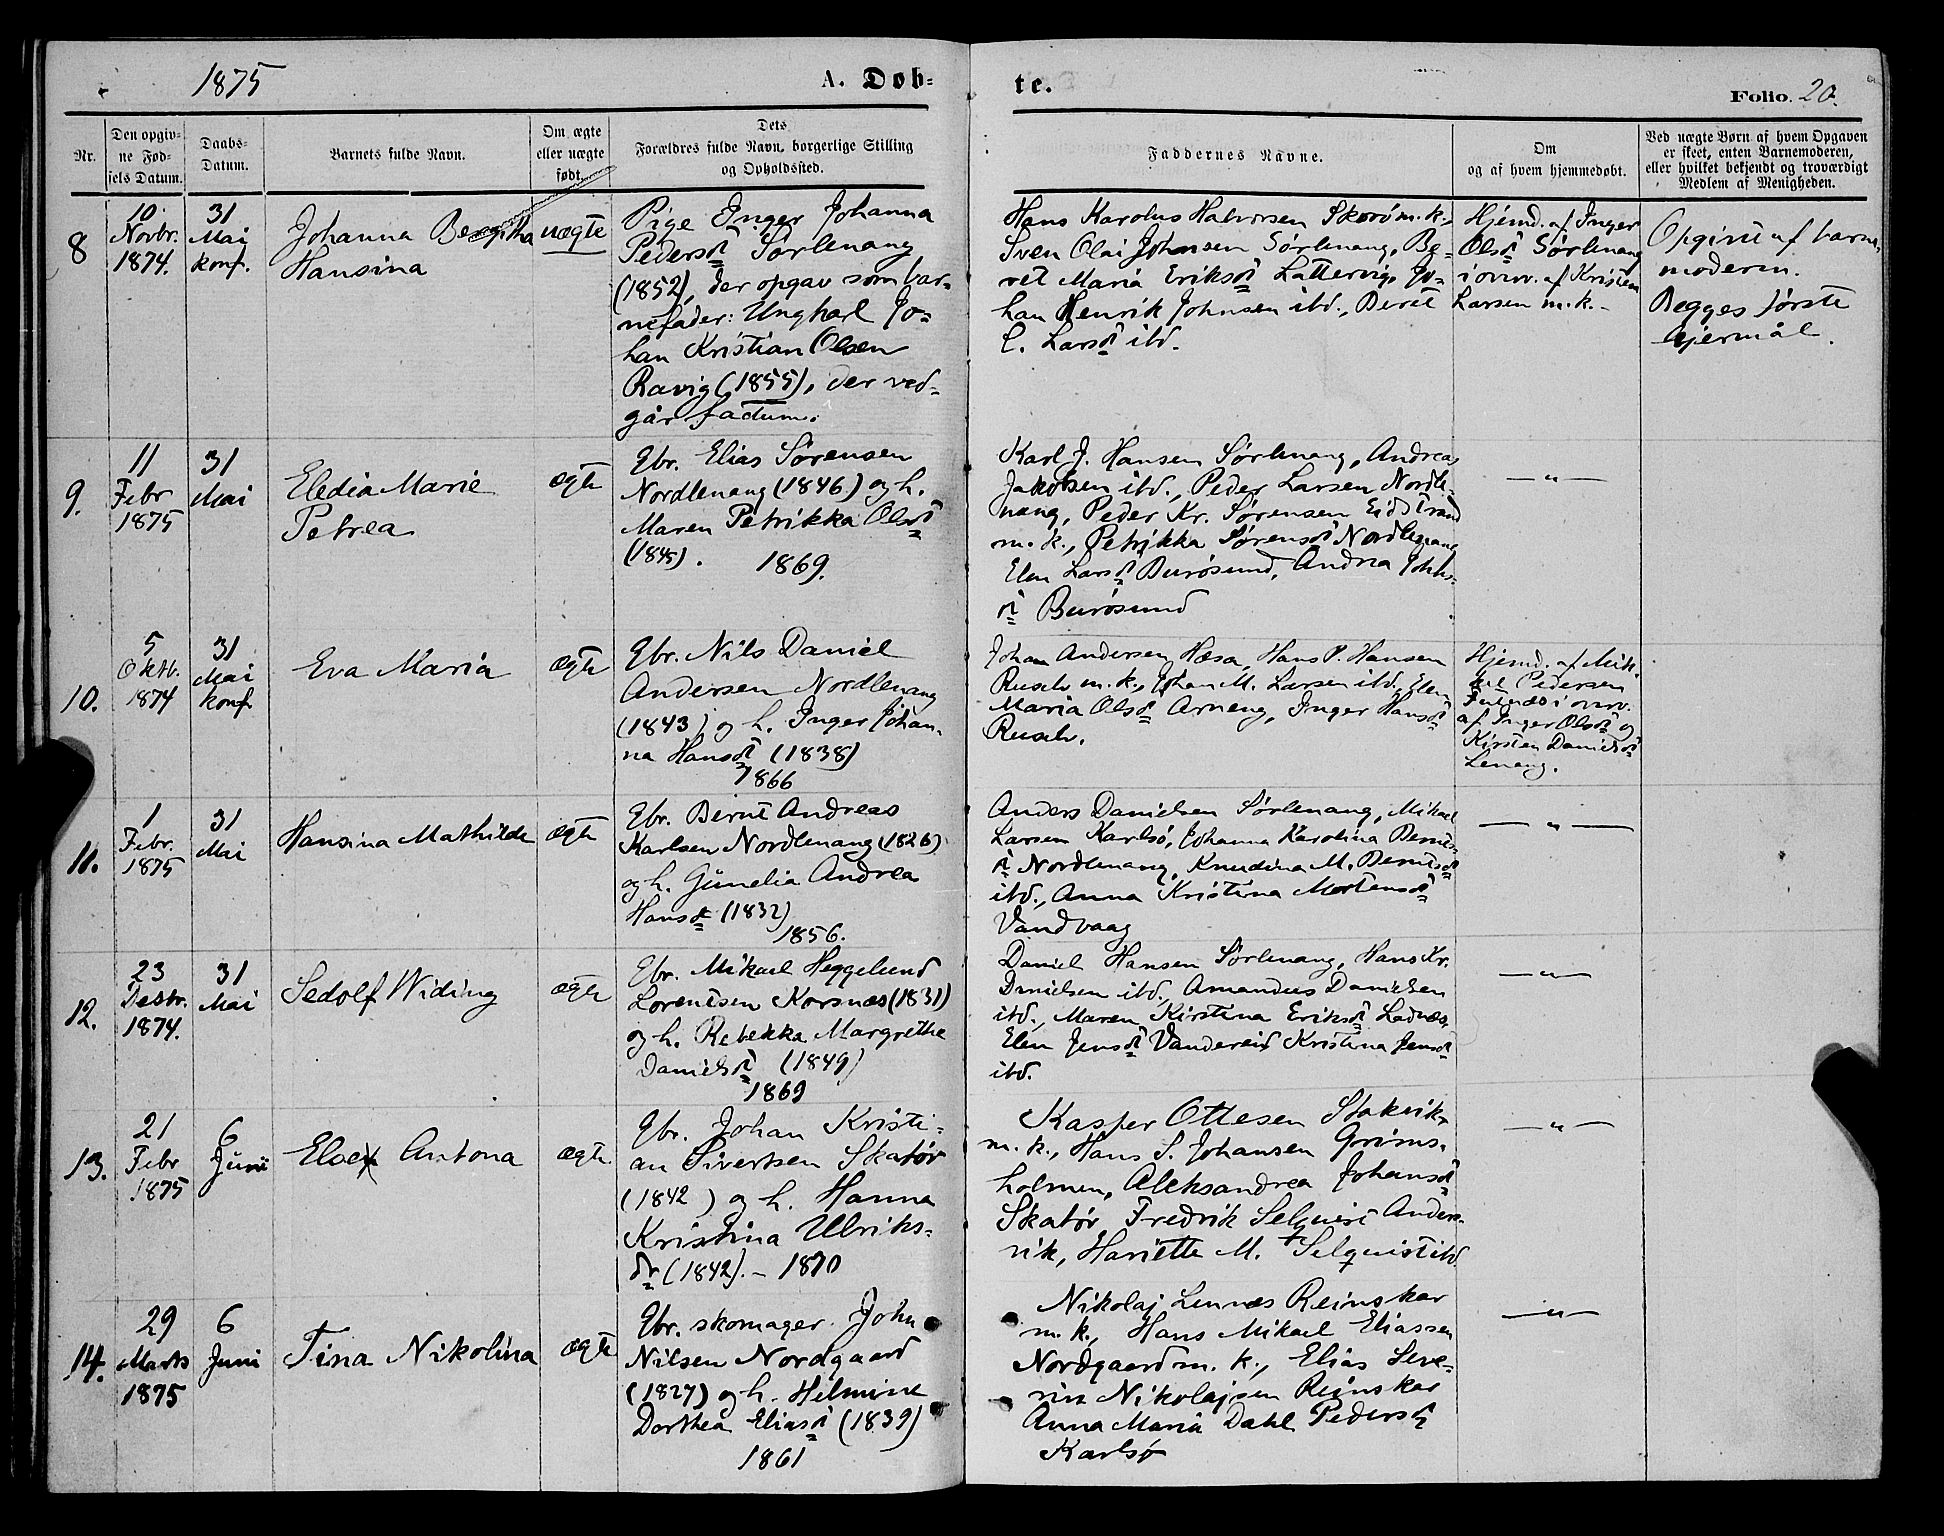 1875
A. Døb-
te.
Folio. 20.
Nr.
Den opgiv-
ne Fød-
sels Datum.
Daabs-
Datum.
Barnets fulde Navn.
Om ægte
eller uægte
født.
Dets
Forældres fulde Navn, borgerlige Stilling
og Opholdssted.
Faddernes Navne.
Om
og af hvem hjemmedøbt.
Ved uægte Børn af hvem Opgaven
er skeet, enten Barnemoderen,
eller hvilket bekjendt og troværdigt
Medlem af Menigheden.
8
10
Novbr.
1874.
31
Mai
konf.
Johanna Bergitha
Hansina
uægte
Pige Inger Johanna
Pedersdr Sørlenang
(1852), der opgav som bar-
nefader: Ungkarl Jo-
han Kristian Olsen
Ravig (1855), der ved-
går factum.
Hans Karolus Halvorsen Skorø m. k.,
Sven Olai Johnsen Sørlenang, Be-
ret Maria Eriksdr Lattervig, Jo-
han Henrik Johnsen ibd., Beret
C. Larsdr ibd.
Hjemd. af Inger
Olsdr Sørlenang
i overv. af Kristen
Larsen m. k.
Opgivet af barne-
moderen.
Begges første
lejermål.
9.
11
Febr
1875
31
Mai
Eledia Marie
Petrea
ægte
Gbr. Elias Sørensen
Nordlenang (1846) og h.
Maren Petrikka Olsdr
(1848). 1869.
Karl J. Hansen Sørlenang, Andreas
Jakobsen ibd., Peder Larsen Nordle-
nang, Peder Kr. Sørensen Eidstrand
m. k., Petrikka Sørensdr Nordlenang
Elen Larsdr Burøsund, Andrea Johns-
dr Burøsund
— " —
10.
5
Oktb.
1874
31
Mai
konf.
Eva Maria
ægte
Gbr. Nils Daniel
Andersen Nordlenang
(1843) og h. Inger Johan-
na Hansdr (1838)
1866
Johan Andersen Hæsa, Hans P. Hansen
Ruselv m. k., Johan M. Larsen ibd. Elen
Maria Olsdr Arneng, Inger Hansdr
Ruselv.
Hjemd. af Mik-
kel Pedersen
i overv.
af Inger Olsdr og
Kirsten Danielsdr
Lenang.
11.
1
Febr.
1875
31
Mai
Hansina Mathilde
ægte
Gbr. Bernt Andreas
Karlsen Nordlenang (1826)
og h. Gunelia Andrea
Hansdr (1832)
1856.
Anders Danielsen Sørlenang, Mikael
Larsen Karlsø, Johanna Karolina Bernts-
dr Nordlenang, Knudina M. Berntsdr
ibd., Anna Kristina Mortensdr
Vandvaag
— " —
12.
23
Desbr.
1874.
31
Mai
Sedolf Widing
ægte
Gbr. Mikael Heggelund
Lorentsen Korsnæs (1831)
og h. Rebekka Margrethe
Danielsdr (1849)
1869
Daniel Hansen Sørlenang, Hans Kr.
Danielsen ibd., Amandus Danielsen
ibd., Maren Kirstina Eriksdr Ladnæs,
Elen Jensdr Vandereid Kristina Jensdr
ibd.
— " —
13.
21
Febr
1875
6
Juni
Antona
ægte
Gbr. Johan Kristi-
an Sivertsen Skatør
(1842) og h. Hanna
Kristina Ulriks-
dr (1842). — 1870
Kasper Ottesen Stakvik
m. k., Hans S. Johansen Grims-
holmen, Aleksandrea Johansdr
Skatør, Fredrik Selquist Anders-
vik, Hariette M. Selquist ibd
— " —
14.
29
Marts
1875
6
Juni
Tina Nikolina
ægte
Gbr. skomager John
Nilsen Nordgaard
(1827) og h. Helmine
Dorthea Eliasdr (1839)
1861
Nikolaj Lennæs Reinskar
m. k., Hans Mikael Eliassen
Nordgaard m. k., Elias Seve-
rin Nikolajsen Reinskar
Anna Maria Dahl Pedersdr
Karlsø
— " —